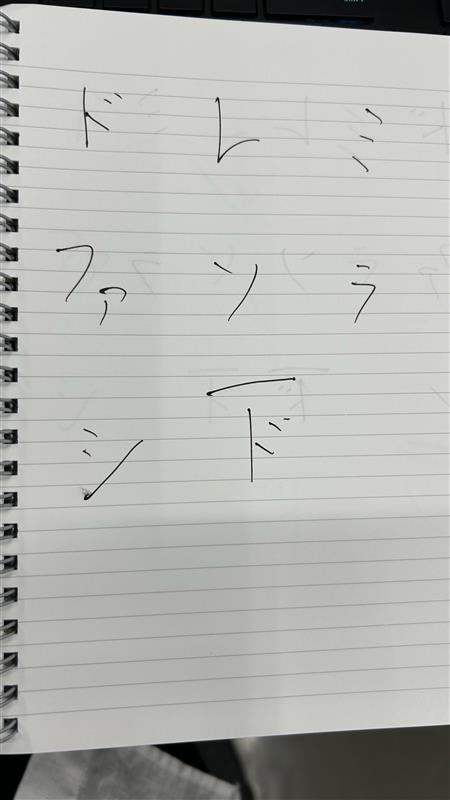 ド レ ミ
ファ ソ ラ
シ ド